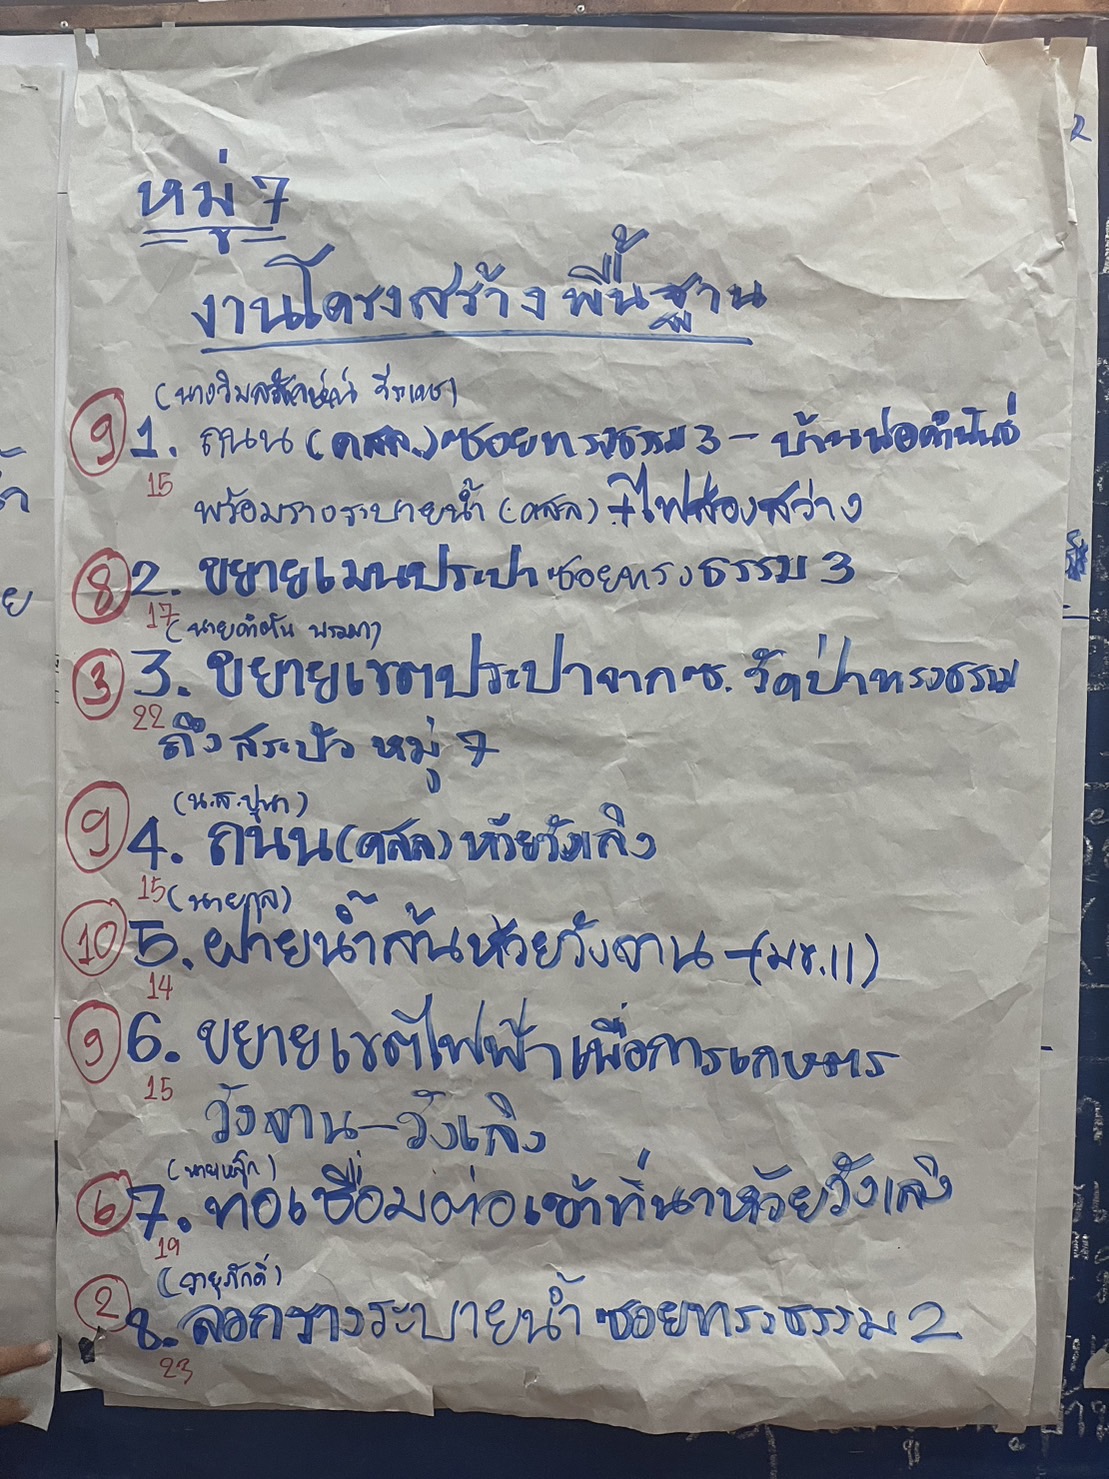 หมู่ 7
งานโครงสร้างพื้นฐาน
(นางวิมลรักษณ์
9 1. ถนน (คสล.) ซอยทรงธรรม 3 - บ้านพ่อคำพันธ์
15
พร้อมรางระบายน้ำ (คสล) + ไฟส่องสว่าง
8 2. ขยายเมนประปา ซอยทรงธรรม 3
17
(นายคำตัน พรมมา)
3 3. ขยายเขตประปาจาก ซ. วัดป่าทรงธรรม
22
ถึงสระบัว หมู่ 7
(น.ส.ปุนา)
9 4. ถนน (คสล) ห้วยวังเลิง
15 (นายกุล)
10 5. ฝายน้ำล้นห้วยวังจาน - (มข.11)
14
9 6. ขยายเขตไฟฟ้าเพื่อการเกษตร
15
วังจาน - วังเลิง
(นายหลุ๊ก)
6 7. ท่อเชื่อมต่อเข้าที่นาห้วยวังเลิง
19
(วายุภักดิ์)
2 8. ลอกรางระบายน้ำ ซอยทรงธรรม 2
23